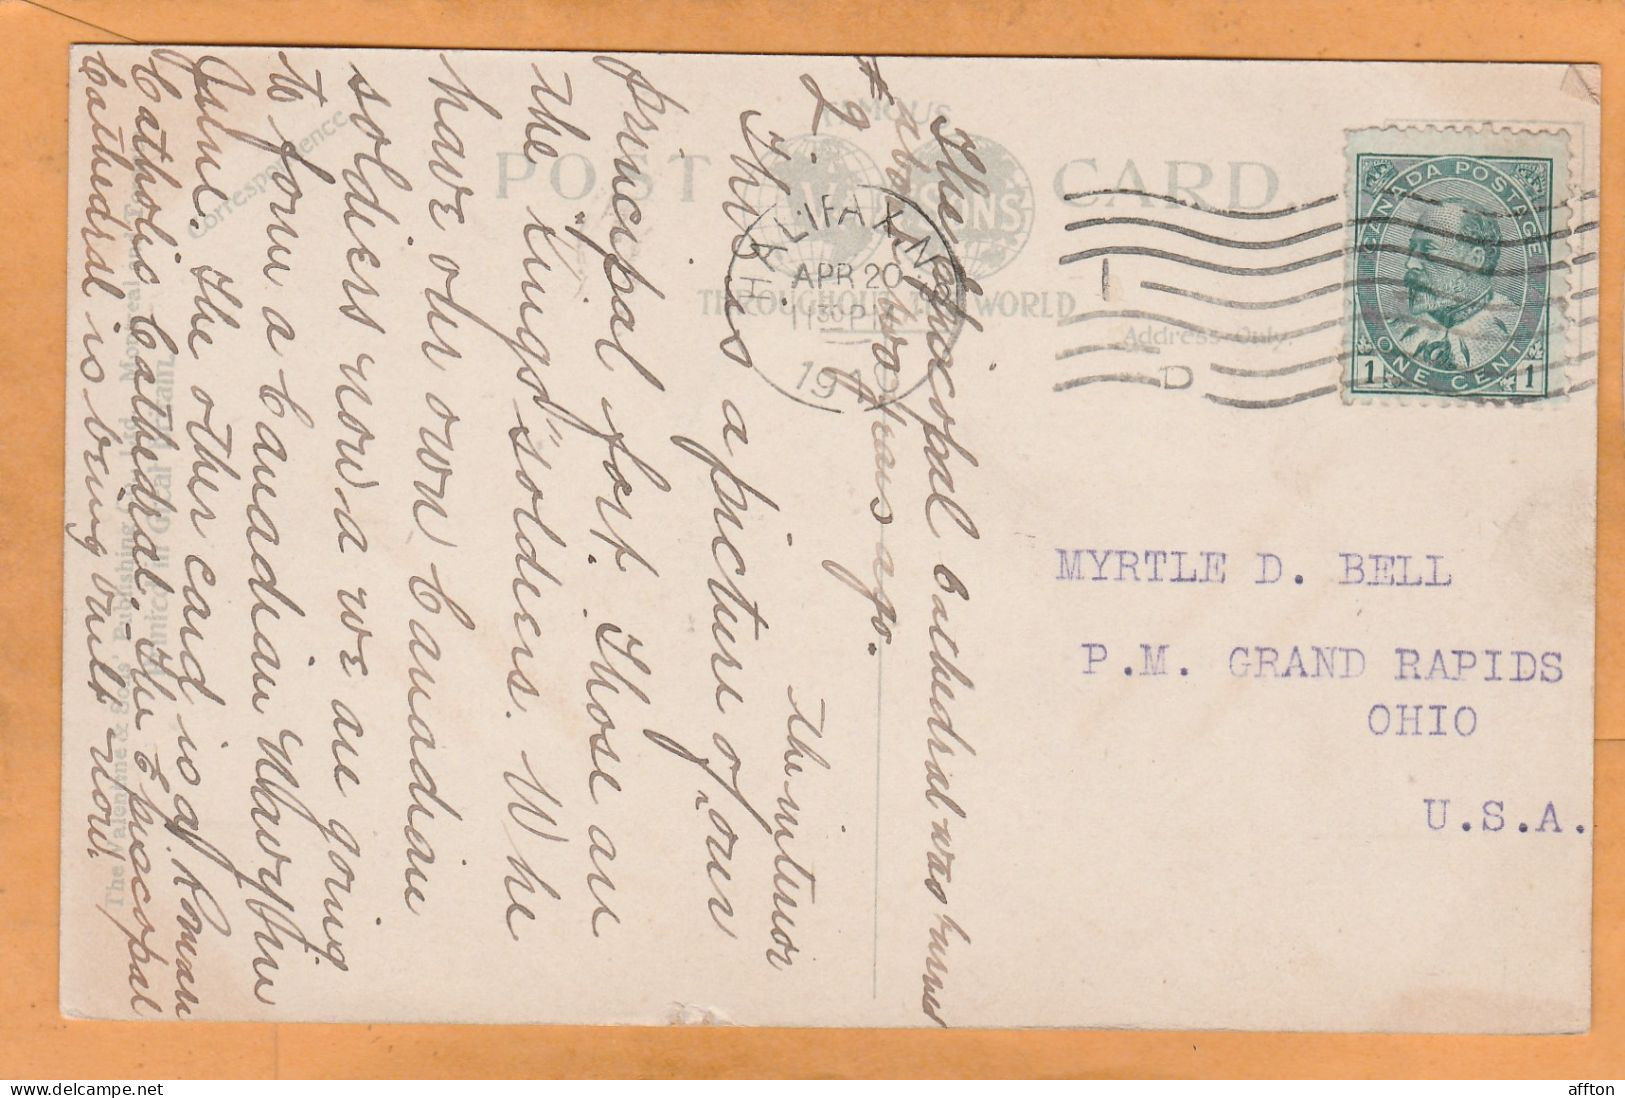 FAMOUS
POST CARD.
V & SONS
THROUGHOUT THE WORLD
Correspondence
Address Only.
The Valentine & Sons' Publishing Co., Ltd., Montreal and Toronto
Printed in Great Britain.
HALIFAX N
APR 20
11 30 PM
191
D
CANADA POSTAGE
ONE CENT
1 1
MYRTLE D. BELL
P.M. GRAND RAPIDS
OHIO
U.S.A.
This is a picture of our
principal fort. Those are
the "Kings" soldiers. We
have our own Canadian
soldiers now a we are going
to form a Canadian Navy the
June. The other card is of Roman
Catholic Cathedral. The Episcopal
Cathedral is being built now.
The Episcopal Cathedral was burned
about two years ago.
The interior
affton